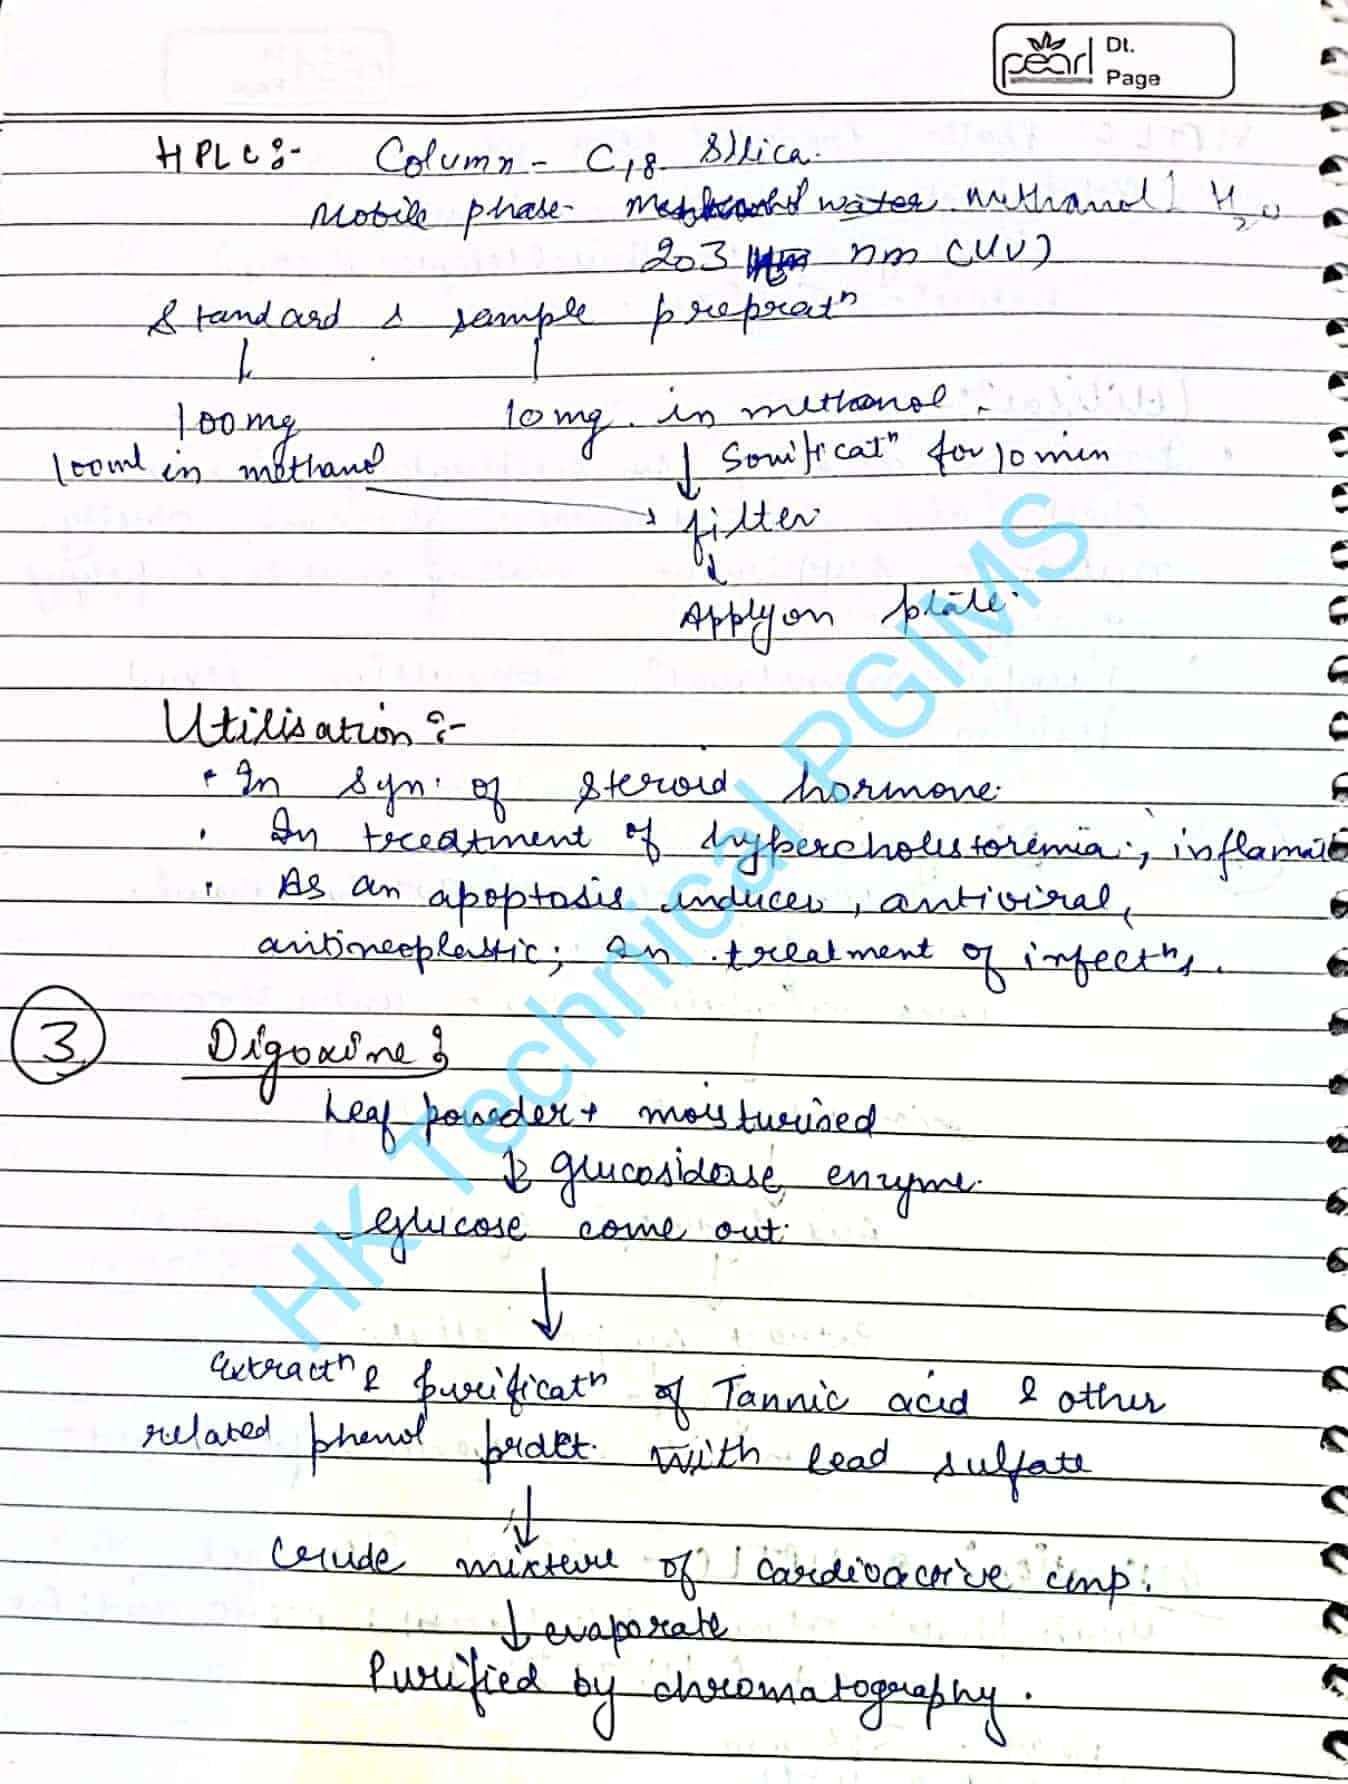 pearl Dt.
Page
HPLC:- Column - C18 Silica.
Mobile phase- water methanol | H2O
203 nm (UV)
Standard & sample prepratn
100mg 10mg in methanol.
100ml in methanol ↓ Sonificatn for 10 min
→ filter
↓
Apply on plate.
Utilisation:-
• In syn. of steroid hormone.
• In treatment of hypercholestoremia, inflamat
• As an apoptosis inducer, antiviral,
antineoplastic; In treatment of infectns.
3 Digoxine:
Leaf powder + moisturised
↓ glucosidase enzyme.
glucose come out.
↓
extractn & purificatn of Tannic acid & other
related phenol prdct. with lead sulfate
↓
Crude mixture of cardioactive cmp.
↓ evaporate
Purified by chromatography.
HK Technical PGIMS